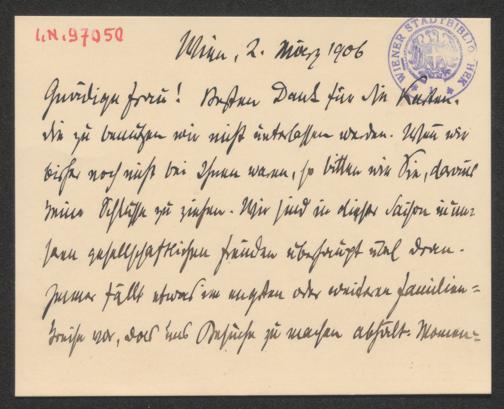 I.N. 97050
WIENER STADTBIBLIOTHEK
Wien, 2. März 1906
Gnädige Frau! Besten Dank für die Karten,
die zu benutzen wir nicht unterlassen werden. Wenn wir
bisher noch nicht bei Ihnen waren, so bitten wir Sie, daraus
keine Schlüsse zu ziehen. Wir sind in dieser Saison un-
sern gesellschaftlichen Freunden überhaupt dran.
Immer fällt etwas im engsten oder weiteren Familien=
kreise vor, das uns Besuche zu machen abhält. Momen=